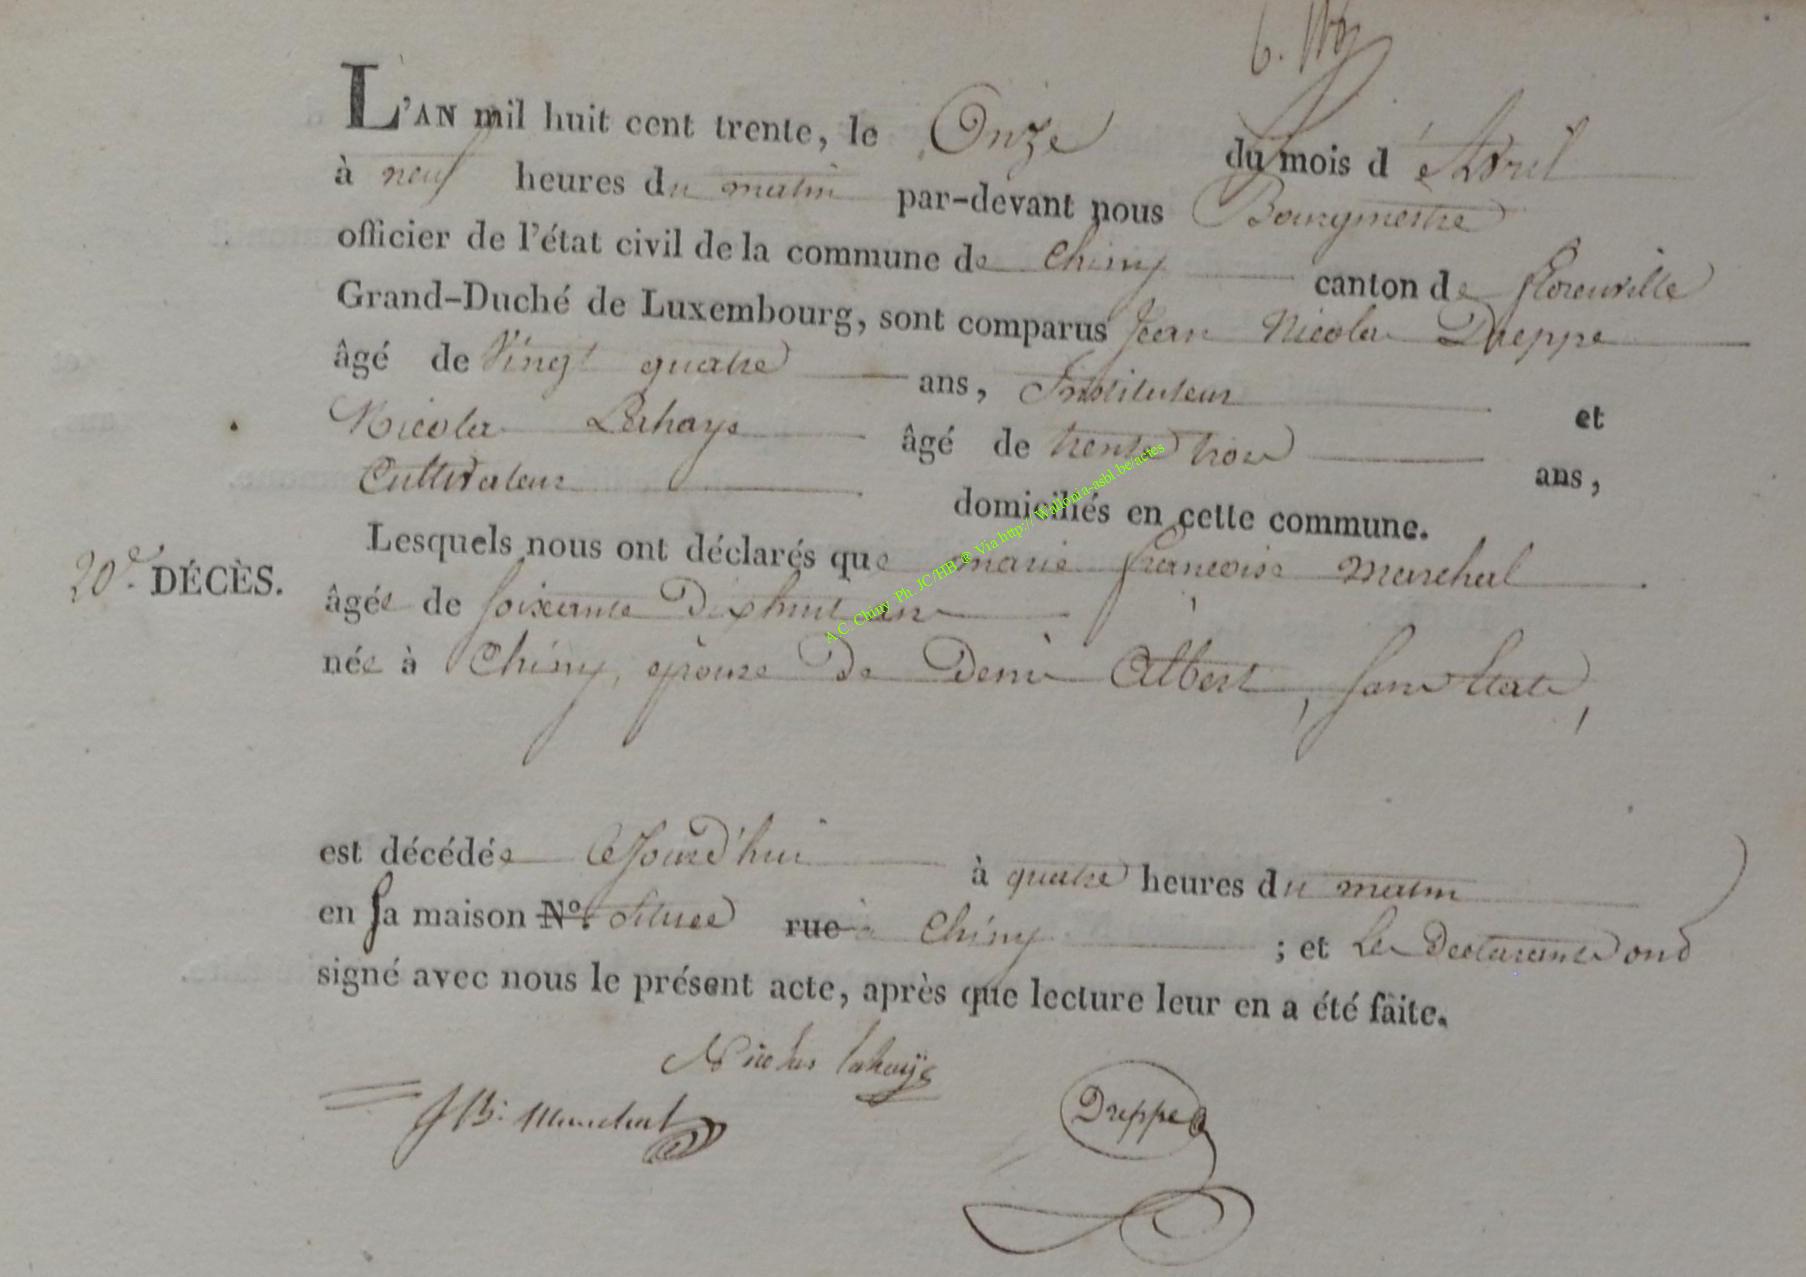 L'AN mil huit cent trente, le Onze du mois d'Avril
à neuf heures du matin par-devant nous Bourgmestre
officier de l'état civil de la commune de Chiny canton de florenville
Grand-Duché de Luxembourg, sont comparus Jean Nicolas Dreppe
âgé de Vingt quatre ans, Instituteur et
Nicolas Lahaye âgé de trente trois ans,
Cultivateur domiciliés en cette commune.
Lesquels nous ont déclarés que marie françoise marchal
20e DÉCÈS.
âgée de soixante Dixhuit ans
née à Chiny, épouse de Denis Albert, sans État,
est décédée Cejourd'hui à quatre heures du matin
en sa maison N°. située rue à Chiny ; et Les Declarants ont
signé avec nous le présent acte, après que lecture leur en a été faite.
Nicolas lahaÿe
JB: Marchal
Dreppe
A.C. Chiny Ph JC/HB ® Via http://Wallonia-asbl.be/actes